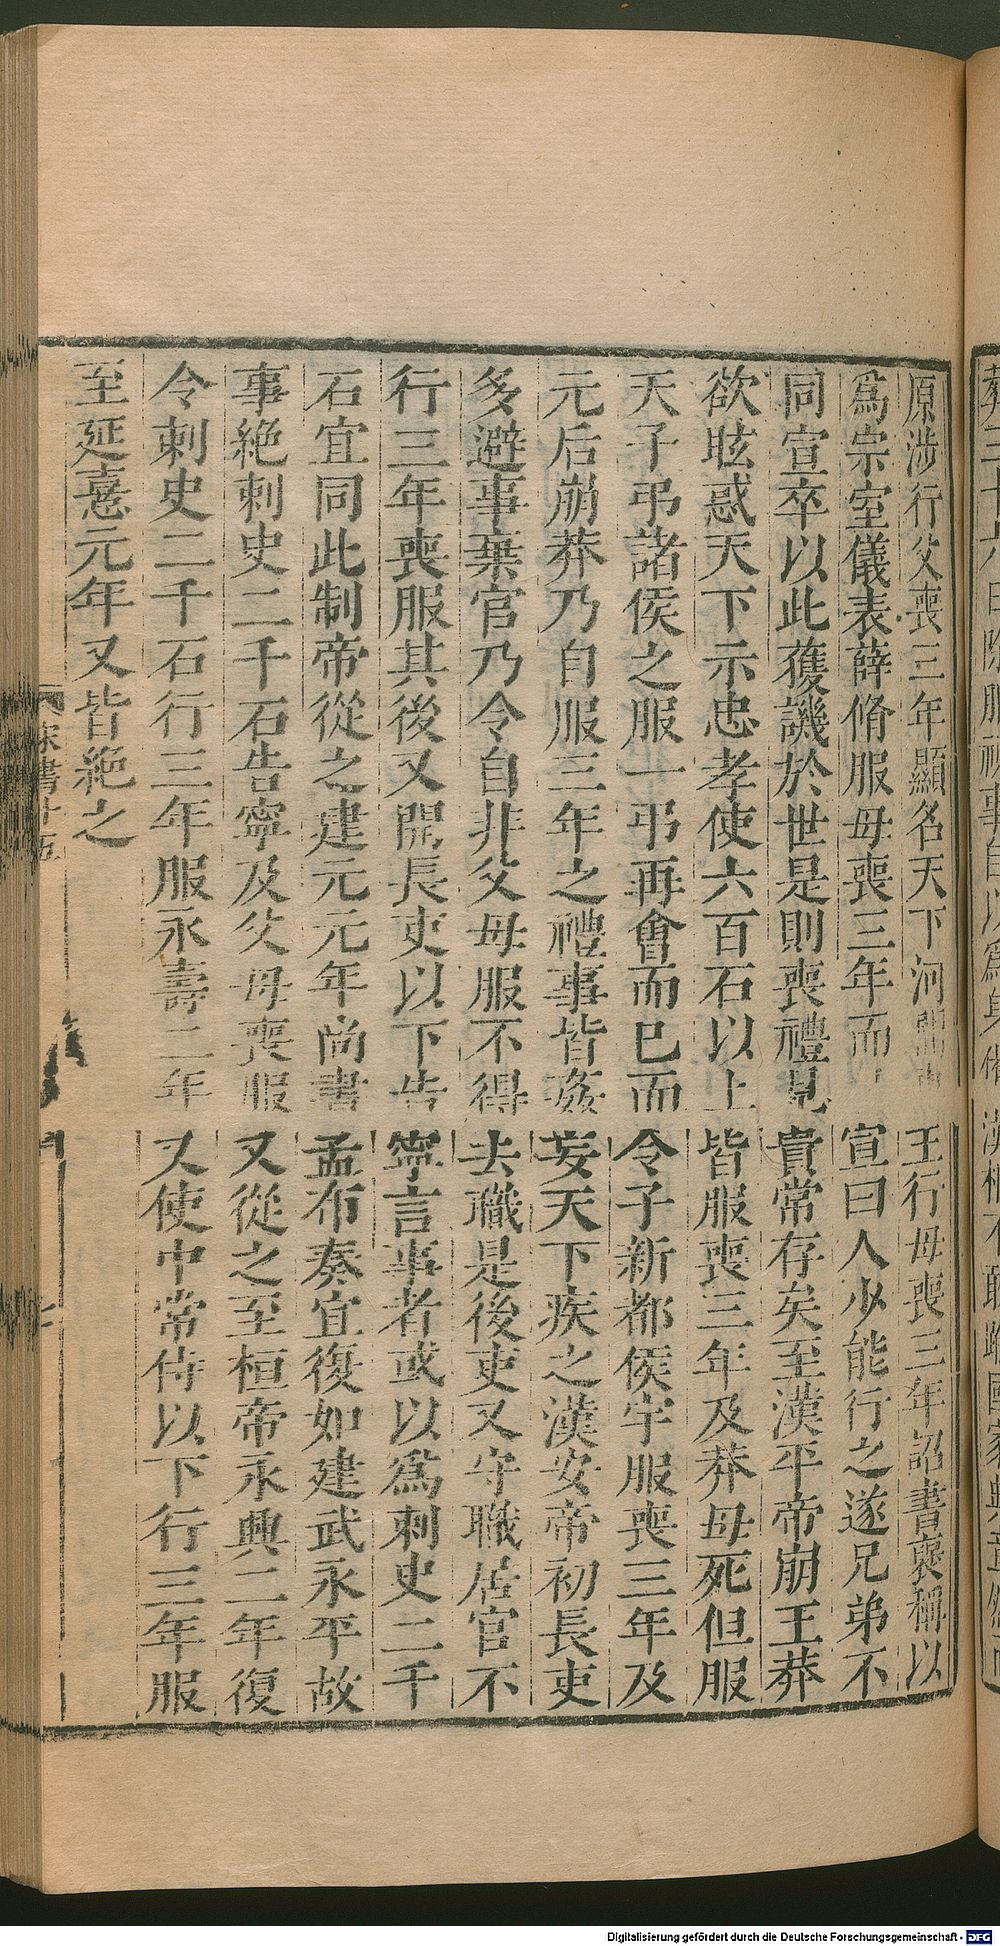 原涉行父喪三年顯名天下河王行母喪三年詔書襃稱以
爲宗室儀表薛脩服母喪三年而宣曰人少能行之遂兄弟不
同宣卒以此獲譏於世是則喪禮見貴常存矣至漢平帝崩王莽
欲眩惑天下示忠孝使六百石以上皆服喪三年及莽母死但服
天子弔諸侯之服一弔再會而已而令子新都侯宇服喪三年及
元后崩莽乃自服三年之禮事皆姦妄天下疾之漢安帝初長吏
多避事棄官乃令自非父母服不得去職是後吏又守職居官不
行三年喪服其後又開長吏以下告寧言事者或以爲刺史二千
石宜同此制帝從之建元元年尚書孟布奏宜復如建武永平故
事絶刺史二千石告寧及父母喪服又從之至桓帝永興二年復
令刺史二千石行三年服永壽二年又使中常侍以下行三年服
至延憙元年又皆絶之
宋書十五
Digitalisierung gefördert durch die Deutsche Forschungsgemeinschaft - DFG